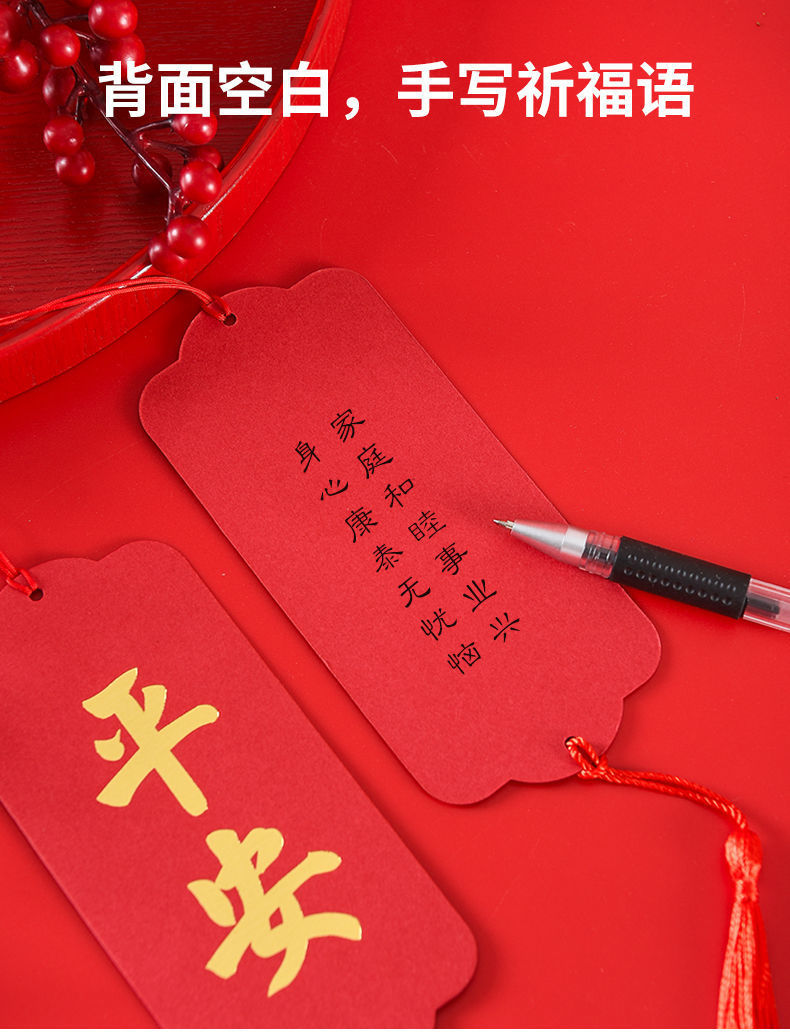 背面空白，手写祈福语
家庭和睦事业兴
身心康泰无忧恼
平安